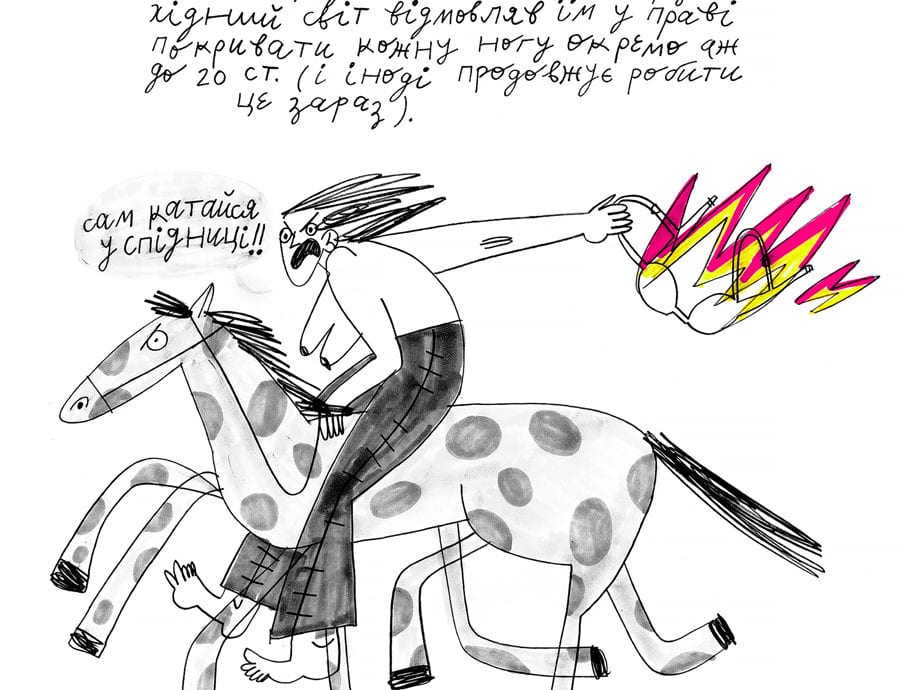 хідний світ відмовляв їм у праві
покривати кожну ногу окремо аж
до 20 ст. (і іноді продовжує робити
це зараз).
сам катайся
у спідниці!!